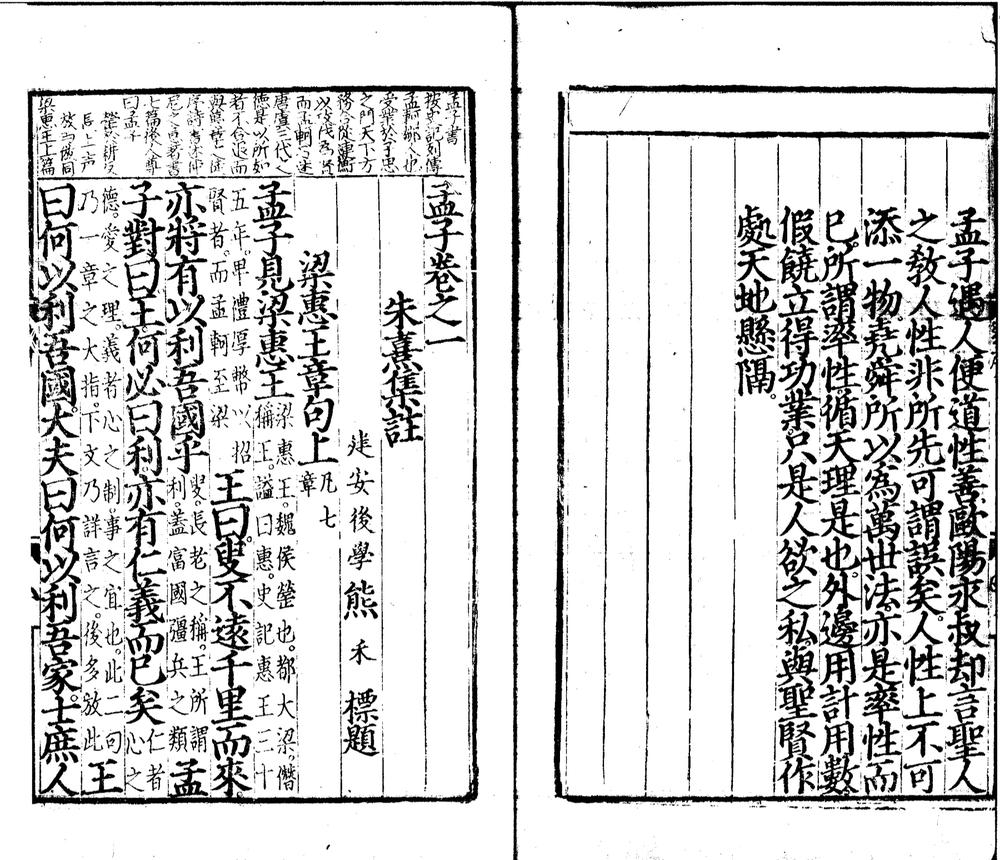 孟子遇人便道性善歐陽永叔却言聖人
之敎人性非所先可謂誤矣。人性上不可
添一物堯舜所以爲萬世法。亦是率性而
已。所謂率性。循天理是也。外邊用計用數。
假饒立得功業。只是人欲之私。與聖賢作
處天地懸隔。
孟子卷之一
朱熹集註
建安後學熊禾標題
梁惠王章句上 凡七章
孟子見梁惠王 梁惠王。魏侯罃也。都大梁。僭
稱王。謚曰惠。史記惠王三十
五年。卑禮厚幣以招
賢者。而孟軻至梁 王曰。叟不遠千里而來。
亦將有以利吾國乎 叟。長老之稱。王所謂
利。蓋富國彊兵之類 孟
子對曰。王何必曰利。亦有仁義而已矣 仁者
心之
德。愛之理。義者心之制。事之宜也。此二句
乃一章之大指。下文乃詳言之。後多放此 王
曰何以利吾國。大夫曰何以利吾家。士庶人
孟子書
按史記列傳
孟軻鄒人也
受業於子思
之門天下方
務合從連衡
以攻伐爲賢
而孟軻乃述
唐虞三代之
德是以所如
者不合退而
與萬章之徒
序詩書述仲
尼之意著書
七篇後人尊
曰孟子
長上声
梁惠王上篇